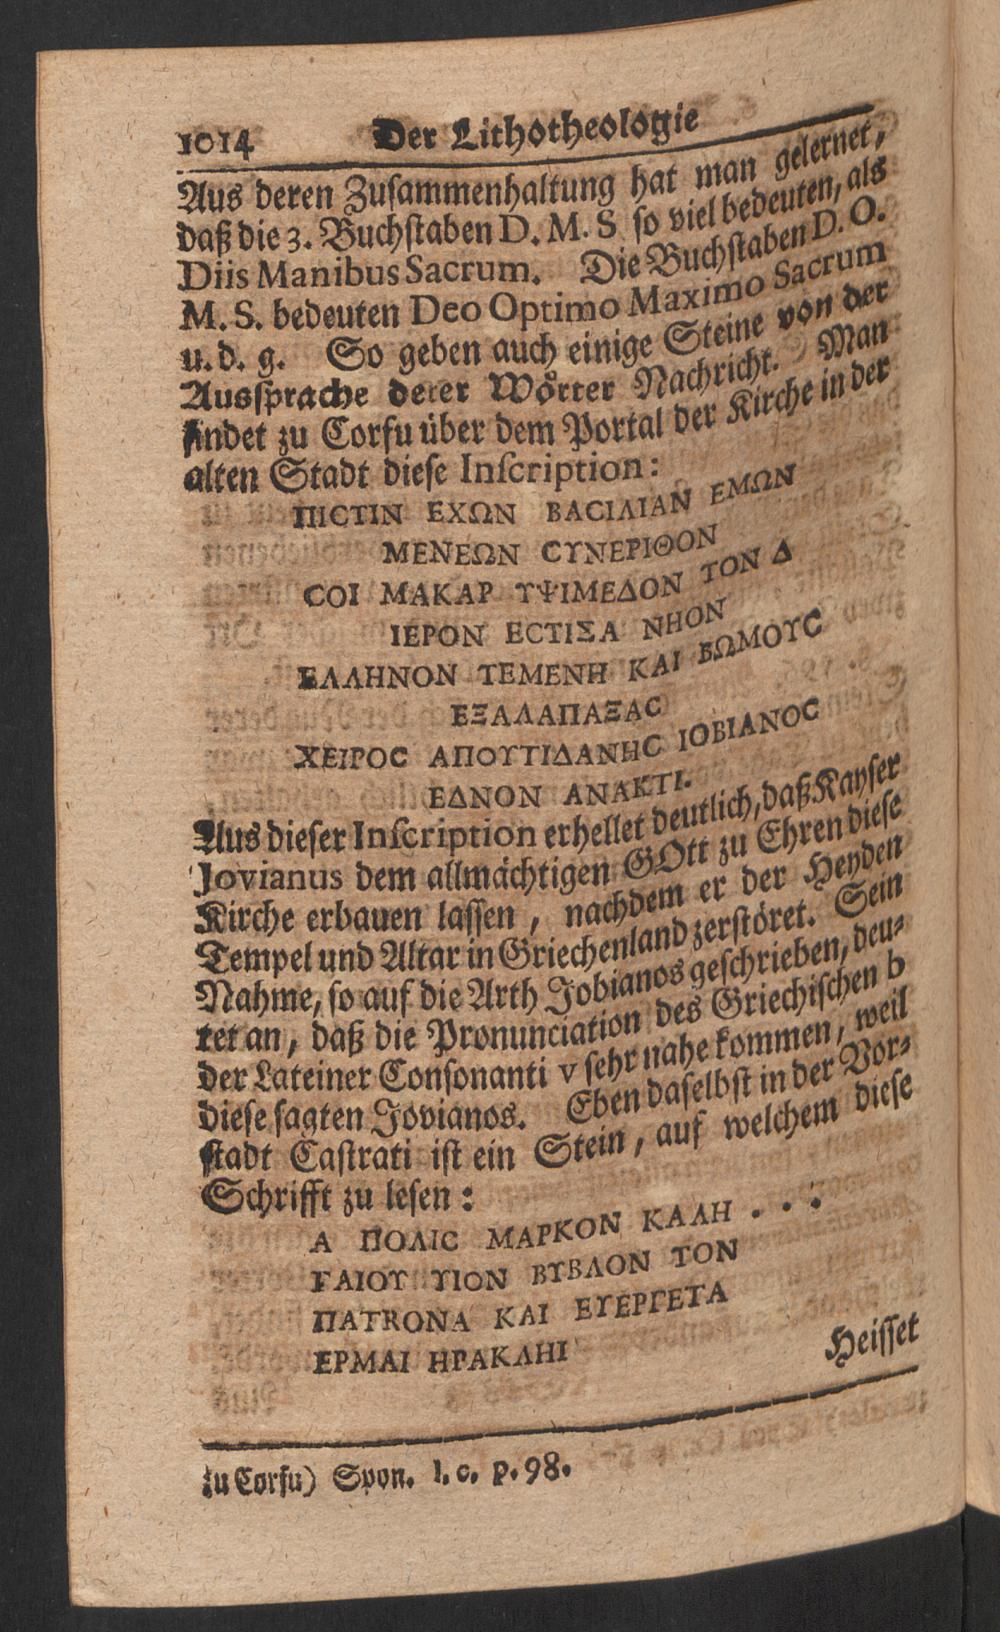 1014 Der Lithotheologie
Aus deren Zusammenhaltung hat man gelernet,
daß die 3. Buchstaben D. M. S so viel bedeuten, als
Diis Manibus Sacrum. Die Buchstaben D. O.
M. S. bedeuten Deo Optimo Maximo Sacrum
u. d. g. So geben auch einige Steine von der
Aussprache derer Wörter Nachricht. Man
findet zu Corfu über dem Portal der Kirche in der
alten Stadt diese Inscription:
ΠΙϹΤΙΝ ΕΧΩΝ ΒΑϹΙΛΙΑΝ ΕΜΩΝ
ΜΕΝΕΩΝ ϹΥΝΕΡΙΘΟΝ
ϹΟΙ ΜΑΚΑΡ ΥΨΙΜΕΔΟΝ ΤΟΝ Δ
ΙΕΡΟΝ ΕϹΤΙΣΑ ΝΗΟΝ
ΕΛΛΗΝΟΝ ΤΕΜΕΝΗ ΚΑΙ ΒΩΜΟΥϹ
ΕΞΑΛΑΠΑΞΑϹ
ΧΕΙΡΟϹ ΑΠΟΥΤΙΔΑΝΗϹ ΙΟΒΙΑΝΟϹ
ΕΔΝΟΝ ΑΝΑΚΤΙ.
Aus dieser Inscription erhellet deutlich, daß Kayser
Jovianus dem allmächtigen GOtt zu Ehren diese
Kirche erbauen lassen, nachdem er der Heyden
Tempel und Altar in Griechenland zerstöret. Sein
Nahme, so auf die Arth Jobianos geschrieben, deu-
tet an, daß die Pronunciation des Griechischen b
der Lateiner Consonanti v sehr nahe kommen, weil
diese sagten Jovianos. Eben daselbst in der Vor-
stadt Castrati ist ein Stein, auf welchem diese
Schrifft zu lesen:
Α ΠΟΛΙϹ ΜΑΡΚΟΝ ΚΑΛΗ . . .
ΓΑΙΟΥ ΥΙΟΝ ΒΥΒΛΟΝ ΤΟΝ
ΠΑΤRΟΝΑ ΚΑΙ ΕΥΕΡΓΕΤΑ
ΕΡΜΑΙ ΗΡΑΚΛΗΙ
Heisset
zu Corfu) Spon. l. c. p. 98.